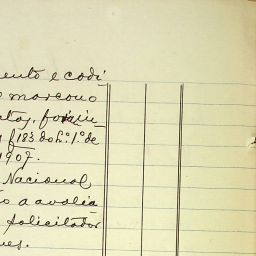 ento e codi-
o marcono
f 183 do L.º 1.º de
1907.
Nacional
o a avalia
solicitador
ves.